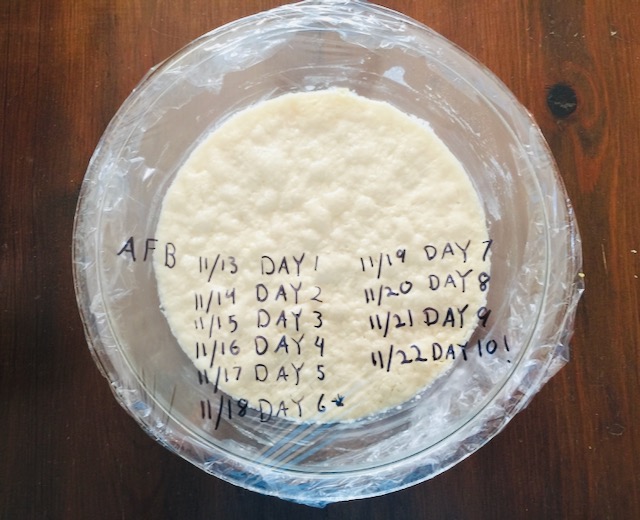 AFB
11/13 DAY 1
11/14 DAY 2
11/15 DAY 3
11/16 DAY 4
11/17 DAY 5
11/18 DAY 6*
11/19 DAY 7
11/20 DAY 8
11/21 DAY 9
11/22 DAY 10!